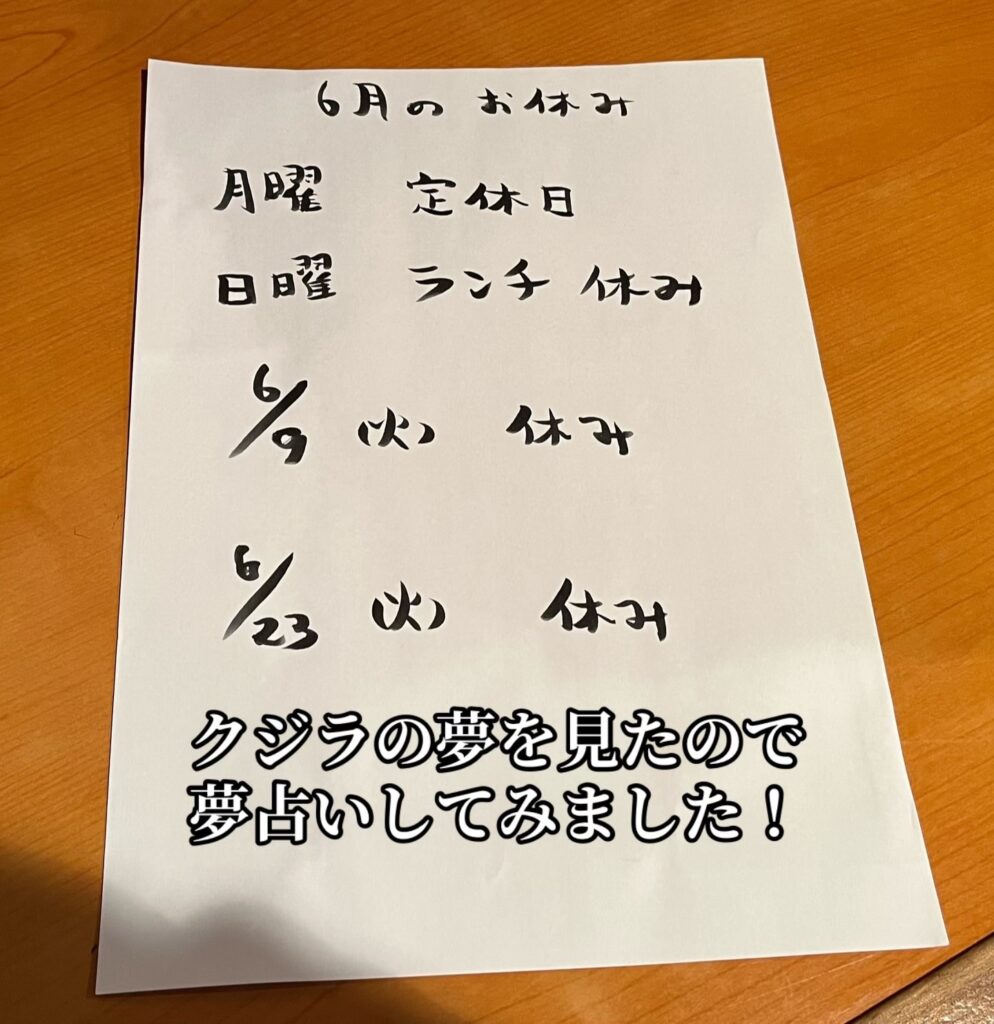 6月の お休み
月曜 定休日
日曜 ランチ 休み
6/9 (火) 休み
6/23 (火) 休み
クジラの夢を見たので
夢占いしてみました！